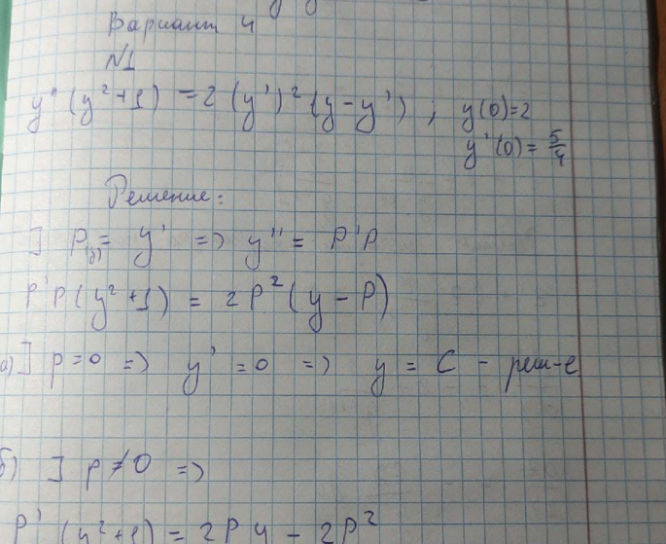 Вариант 4
N1
y''(y²+1) = 2(y')²(y-y') ; y(0)=2
y'(0) = 5/4
Решение:
] P(y) = y' => y'' = P'P
P'P(y²+1) = 2P²(y-P)
а) ] p=0 => y'=0 => y = C - реш-е
б) ] p≠0 =>
P'(y²+1) = 2Py - 2P²